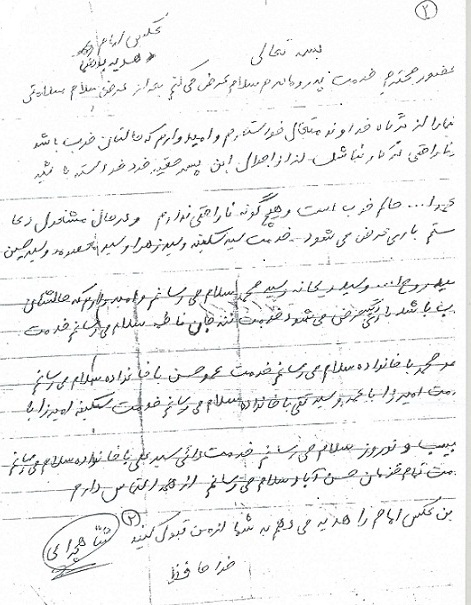 ۲
عکس امام
هدیه
بسمه تعالی
حضور محترم خدمت پدر و مادرم سلام عرض می کنم بعد از عرض سلام سلامتی
شما را از درگاه خداوند متعال خواستارم و امیدوارم که حالتان خوب باشد
ناراحتی نداشته باشید اگر از احوال این پسر حقیر خود خواسته باشید
الحمدا... حالم خوب است و هیچ گونه ناراحتی ندارم و در حال مشغول دعا
هستم باری عرض می شود خدمت سید سکینه و سید زهرا و سید معصومه و سید حسن
سید روح ا... و سید ریحانه و سید محمد سلام می رسانم و امیدوارم که حالشان
خوب باشد باری دیگر عرض می شود خدمت ننه جان فاطمه سلام می رسانم خدمت
عمو محمد با خانواده سلام می رسانم خدمت عمو حسن با خانواده سلام می رسانم
خدمت میرزا با محمد و سید علی با خانواده سلام می رسانم خدمت سکینه و میرزا با
حبیب و نوروز سلام می رسانم خدمت دائی سید علی با خانواده سلام می رسانم
خدمت تمام قوم‌ان حسن آباد سلام می رسانم از همه التماس دارم
این عکس امام را هدیه می دهم به شما از من قبول کنید ۲
خدا حافظ